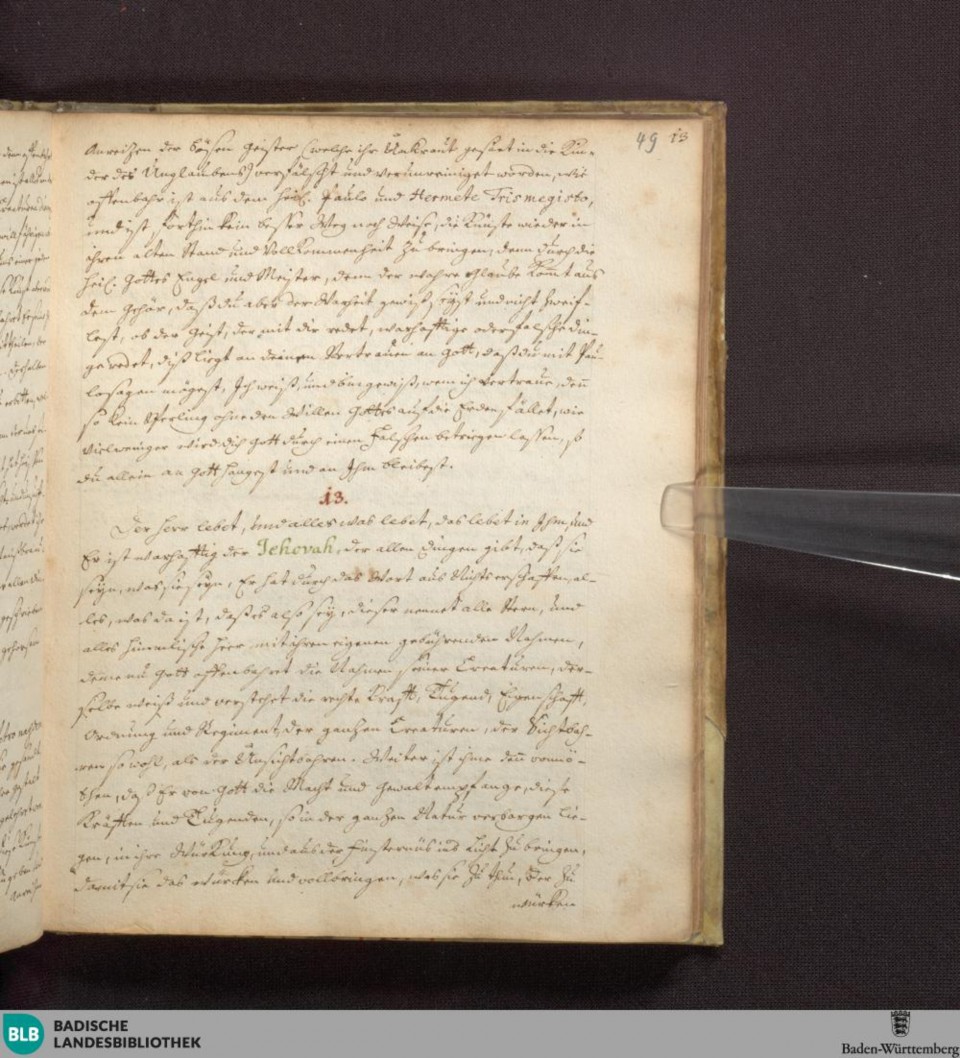 49 13
Anreitzen der bösen Geister (welche ihr Unkraut gesäet in die Kin-
der des Unglaubens) verfälscht und verunreiniget worden, wie
offenbahr ist aus dem heil. Paulo und Hermete Trismegisto,
und ist forthin kein besser Weg noch Weise, die Künste wieder in
ihren alten Stand und Vollkommenheit zu bringen, denn durch die
heil. Gottes Engel und Meister, denn der wahre Glaube komt aus
dem Gehör, daß du aber der Warheit gewiß seyst und nicht zweif-
lest, ob der Geist, der mit dir redet, warhafftige oder falsche Din-
ge redet, diß liegt an deinem Vertrauen an Gott, daß du mit Pau-
lo sagen mögest, Ich weiß, und bin gewiß, wem ich vertraue, den
so kein Sperling ohne den Willen Gottes auf die Erden fället, wie
vielweniger wird dich Gott durch einen Falschen betriegen lassen, so
du allein an Gott hangest und an Ihm bleibest.
13.
Der Herr lebet, und alles was lebet, das lebet in Ihm, und
Er ist warhafftig der Jehovah, der allen Dingen gibt, daß sie
seyn, was sie seyn, Er hat durch das Wort aus Nichts erschaffen, al-
les, was da ist, daß es also sey, dieser nennet alle Stern, und
alles himmlische Heer mit ihren eigenen gebührenden Nahmen,
deme nu Gott offenbahret die Nahmen seiner Creaturen, der-
selbe weiß und verstehet die rechte Krafft, Tugend, Eigenschafft,
Ordnung und Regiment, der gantzen Creaturen, der Sichtbah-
ren so wohl, als der Unsichtbahren. Weiter ist ihme den vonnö-
then, daß Er von Gott die Macht und Gewalt empfange, diese
Kräfften und Tugenden, so in der gantzen Natur verborgen lie-
gen, in ihre Würkung, und aus der Finsternüs ins Licht zu bringen,
damit sie das würken und vollbringen, was sie zu thun, der zu
würken
BLB BADISCHE
LANDESBIBLIOTHEK
Baden-Württemberg